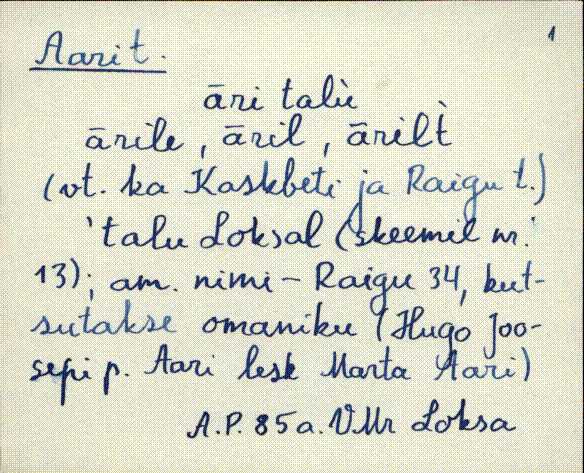 1
Aari t.
āri talù
ārile, āril, ārilt̀
(vt. ka Kaskbeti ja Raigu t.)
'talu Loksal (skeemil nr.
13); am. nimi – Raigu 34, kut-
sutakse omaniku (Hugo Joo-
sepi p. Aari lesk Marta Aari)
A.P. 85 a. VMr Loksa